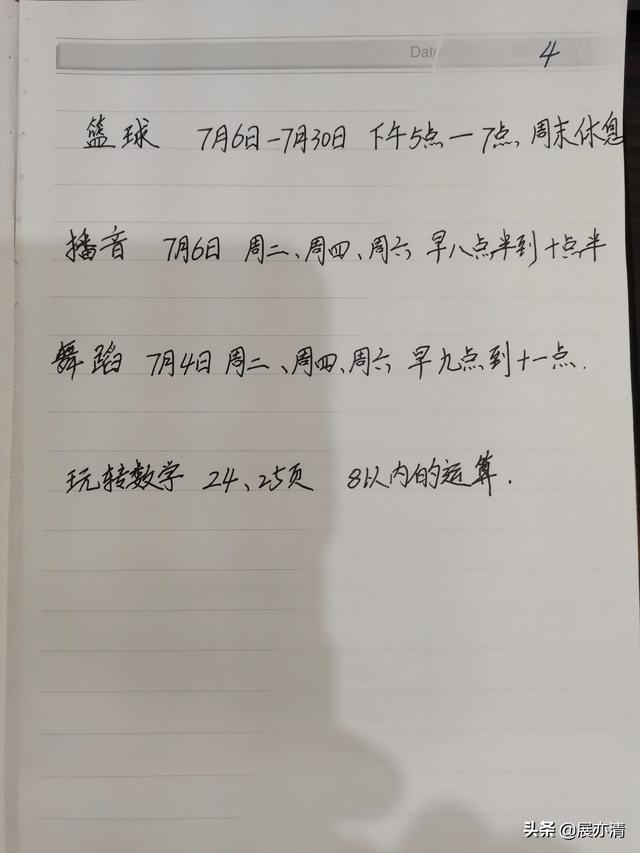 Date
4
篮球 7月6日-7月30日 下午5点-7点、周末休息
播音 7月6日 周二、周四、周六 早八点半到十点半
舞蹈 7月4日 周二、周四、周六 早九点到十一点.
玩转数学 24、25页 8以内的运算.
头条 @展亦清